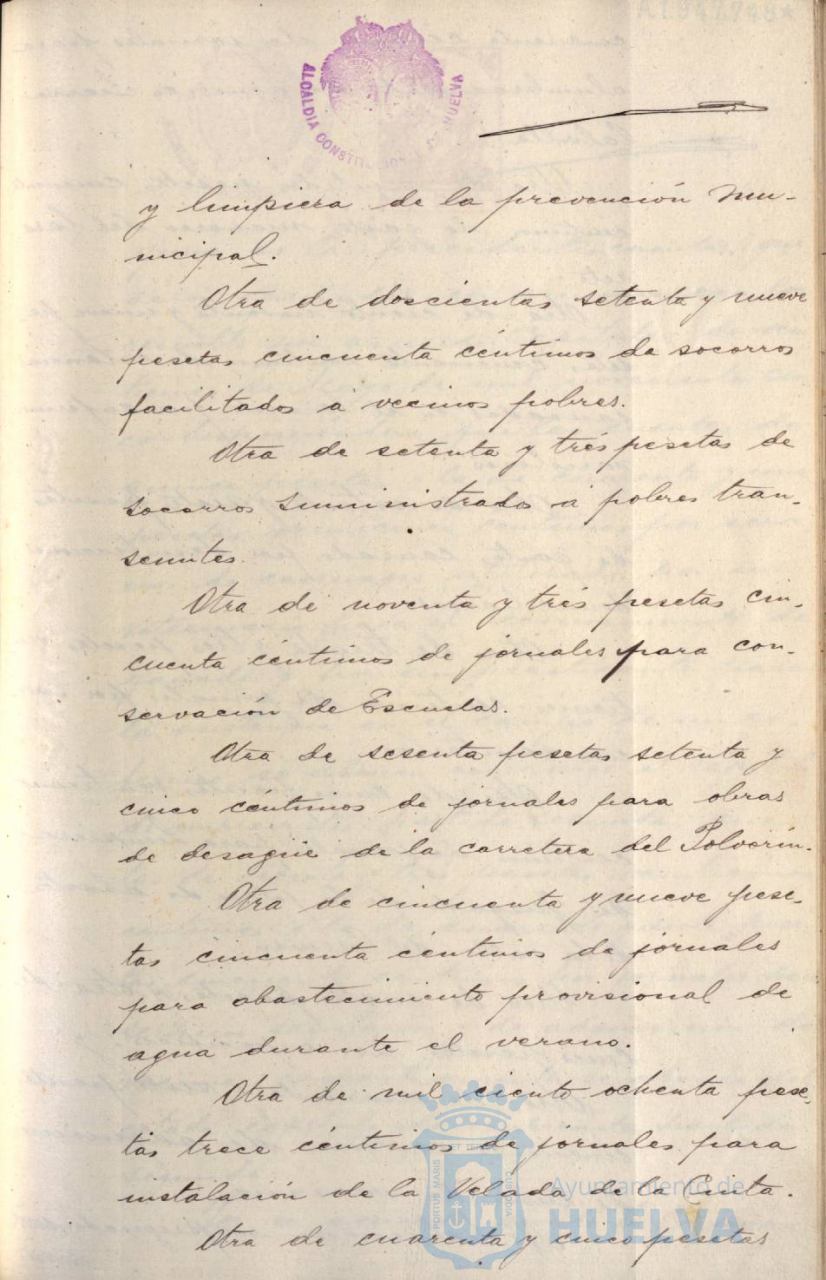 A1947748*
ALCALDIA CONSTITUCIONAL DE HUELVA
y limpieza de la prevención Mu-
nicipal.
Otra de doscientas setenta y nueve
pesetas cincuenta céntimos de socorros
facilitados á vecinos pobres.
Otra de setenta y tres pesetas de
socorros suministrados á pobres tran-
seuntes.
Otra de noventa y tres pesetas cin-
cuenta céntimos de jornales para con-
servación de Escuelas.
Otra de sesenta pesetas setenta y
cinco céntimos de jornales para obras
de desagüe de la carretera del Polvorín.
Otra de cincuenta y nueve pese-
tas cincuenta céntimos de jornales
para abastecimiento provisional de
agua durante el verano.
Otra de mil ciento ochenta pese-
tas trece céntimos de jornales para
instalación de la Velada de la Cinta.
Otra de cuarenta y cinco pesetas
PORTUS MARIS CUSTODIA
Ayuntamiento de
HUELVA